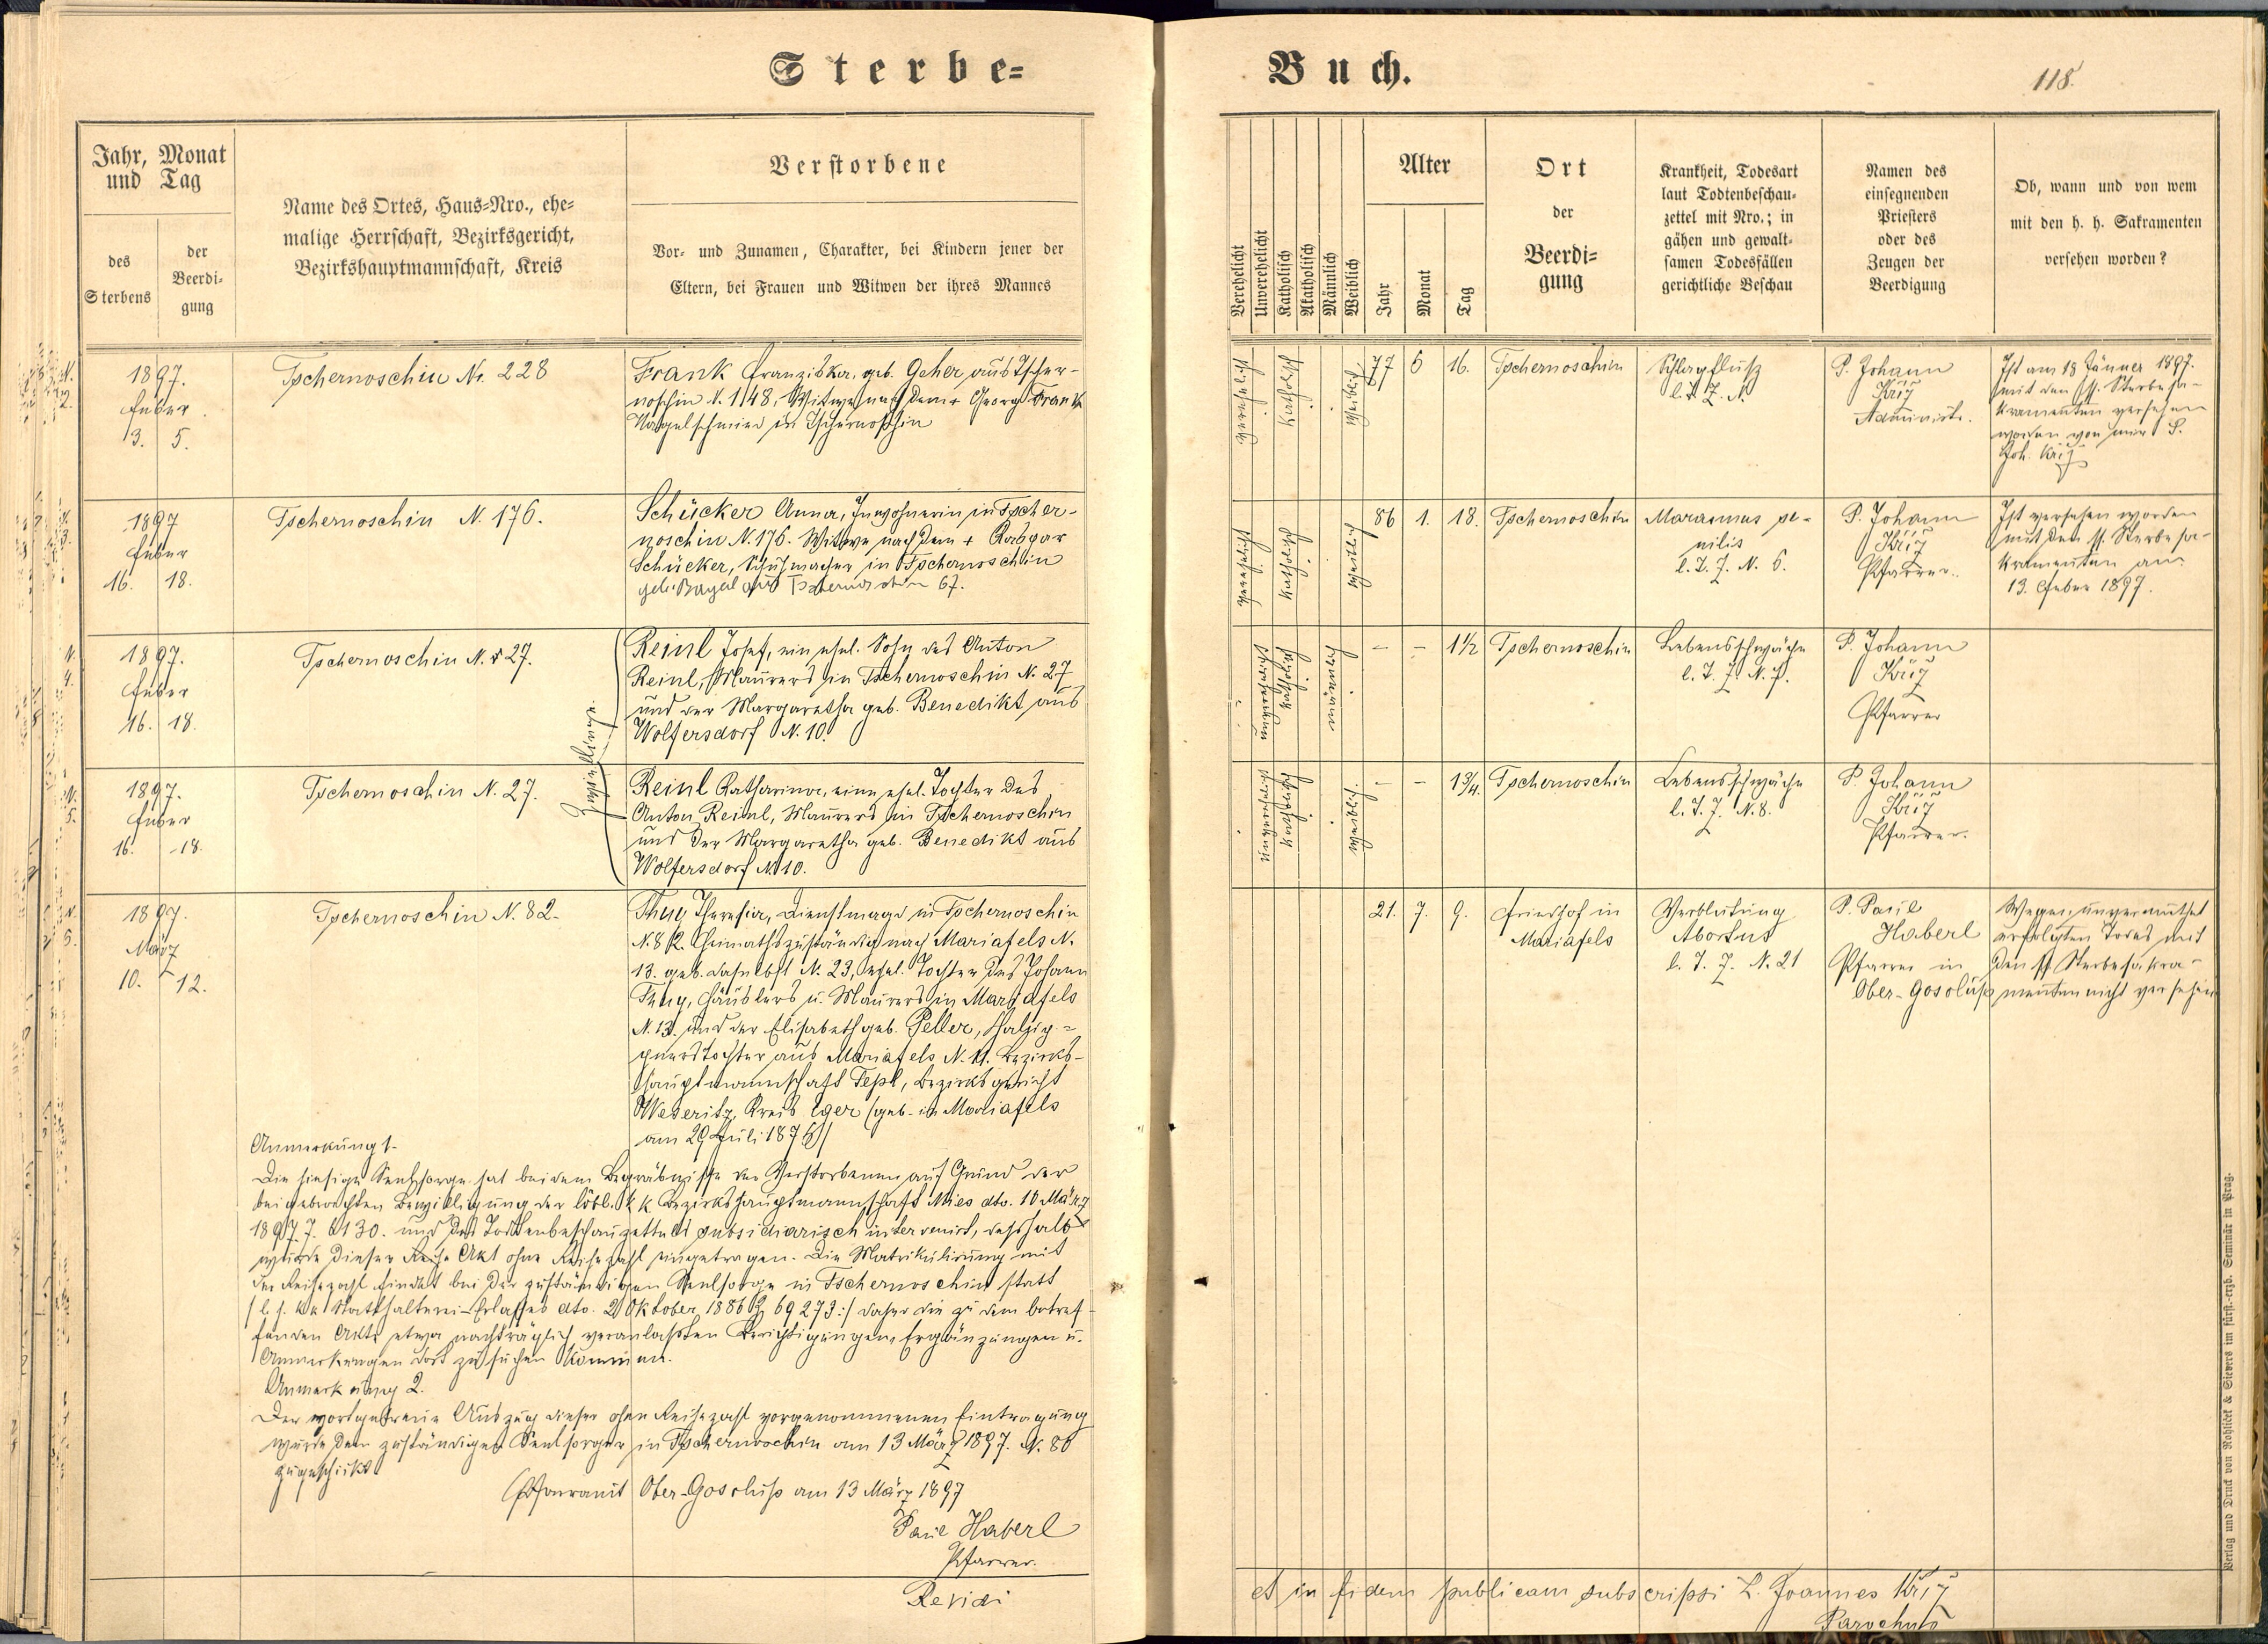 Sterbe=
Buch.
118.
Jahr, Monat
und Tag
des
Sterbens
der
Beerdi-
gung
Name des Ortes, Haus-Nro., ehe-
malige Herrschaft, Bezirksgericht,
Bezirkshauptmannschaft, Kreis
Verstorbene
Vor- und Zunamen, Charakter, bei Kindern jener der
Eltern, bei Frauen und Witwen der ihres Mannes
Verehelicht
Unverehelicht
Katholisch
Akatholisch
Männlich
Weiblich
Alter
Jahr
Monat
Tag
Ort
der
Beerdi-
gung
Krankheit, Todesart
laut Todtenbeschau-
zettel mit Nro.; in
gähen und gewalt-
samen Todesfällen
gerichtliche Beschau
Namen des
einsegnenden
Priesters
oder des
Zeugen der
Beerdigung
Ob, wann und von wem
mit den h. h. Sakramenten
versehen worden?
1897.
Feber
3. 5.
Tschernoschin Nr. 228
Frank Franziska, geb. Geher, aus Tscher-
noschin N. 148, Witwe nach dem + Georg Frank
Nagelschmied in Tschernoschin
verehelicht
katholisch
weiblich
77 5 16.
Tschernoschin
Schlagfluß
P. Johann
Kříž
Administr.
Ist am 18 Jänner 1897.
mit den hh. Sterbesa-
kramenten versehen
worden von mir P.
Joh. Kříž
1897
Feber
16. 18.
Tschernoschin N. 176.
Schücker Anna, Inwohnerin in Tscher-
noschin N. 176. Witwe nach dem + Kaspar
Schücker, Schuhmacher in Tschernoschin
geb. Bayal aus Tschernoschin 67.
verehelicht
katholisch
weiblich
86 1. 18.
Tschernoschin
Marasmus se-
nilis
l. T. Z. N. 6.
P. Johann
Kříž
Pfarrer.
Ist versehen worden
mit den hh. Sterbesa-
kramenten am
13. Feber 1897.
1897.
Feber
16. 18.
Tschernoschin N. 27.
Zwillinge.
Reinl Josef, ein ehel. Sohn des Anton
Reinl, Maurers in Tschernoschin N. 27
und der Margaretha geb. Benedikt aus
Wolfersdorf N. 10.
unverehelicht
katholisch
männlich
– – 1½
Tschernoschin
Lebensschwäche
l. T. Z. N. 7.
P. Johann
Kříž
Pfarrer
1897.
Feber
16. 18.
Tschernoschin N. 27.
Reinl Katharina, eine ehel. Tochter des
Anton Reinl, Maurers in Tschernoschin
und der Margaretha geb. Benedikt aus
Wolfersdorf N. 10.
unverehelicht
katholisch
weiblich
– – 1¾
Tschernoschin
Lebensschwäche
l. T. Z. N. 8.
P. Johann
Kříž
Pfarrer.
1897.
März
10. 12.
Tschernoschin N. 82.
Thuy Theresia, Dienstmagd in Tschernoschin
N. 82. Heimathszuständig nach Mariafels N.
13. geb. daselbst N. 23, ehel. Tochter des Johann
Thuy, Häuslers u. Maurers in Mariafels
N. 13. und der Elisabeth geb. Peller,
aus Mariafels N. 11. Bezirks-
hauptmannschaft Tepl, Bezirksgericht
Weseritz, Kreis Eger (geb. in Mariafels
am 29 Juli 1875)
21. 7. 9.
Friedhof in
Mariafels
Verblutung
Abortus
l. T. Z. N. 21
P. Paul
Haberl
Pfarrer in
Ober-Gosoluß
Wegen unvermuthet
erfolgten Todes mit
den hh Sterbesakra-
menten nicht versehen
Anmerkung 1.
Die hiesige Seelsorge hat bei dem Begräbnisse der Verstorbenen auf Grund der
beigebrachten Bewilligung der löbl. k k Bezirkshauptmannschaft Mies dto. 10 März
1897 Z. 6130. und des Todtenbeschauzettels subsidiarisch intervenirt, deßhalb
wurde dieser Akt ohne Reihezahl eingetragen. Die Matrikulirung mit
der Reihezahl findet bei der zuständigen Seelsorge in Tschernoschin statt
/l. h. kk Statthalterei-Erlasses dto. 21 Oktober 1886 Z. 69273:/ daher die zu dem betref-
fenden Akte etwa nachträglich veranlaßten Berichtigungen, Ergänzungen u.
Anmerkungen dort zu suchen kommen.
Anmerkung 2.
Der wortgetreue Auszug dieser ohne Reihezahl vorgenommenen Eintragung
wurde dem zuständigen Seelsorger in Tschernoschin am 13 März 1897. N. 80
zugeschickt
Pfarramt Ober-Gosoluß am 13 März 1897
Paul Haberl
Pfarrer.
Revidi
et in fidem publicam subscripsi P. Joannes Kříž
Parochus
Verlag und Druck von Rohliček & Sievers im fürst.-erzb. Seminär in Prag.